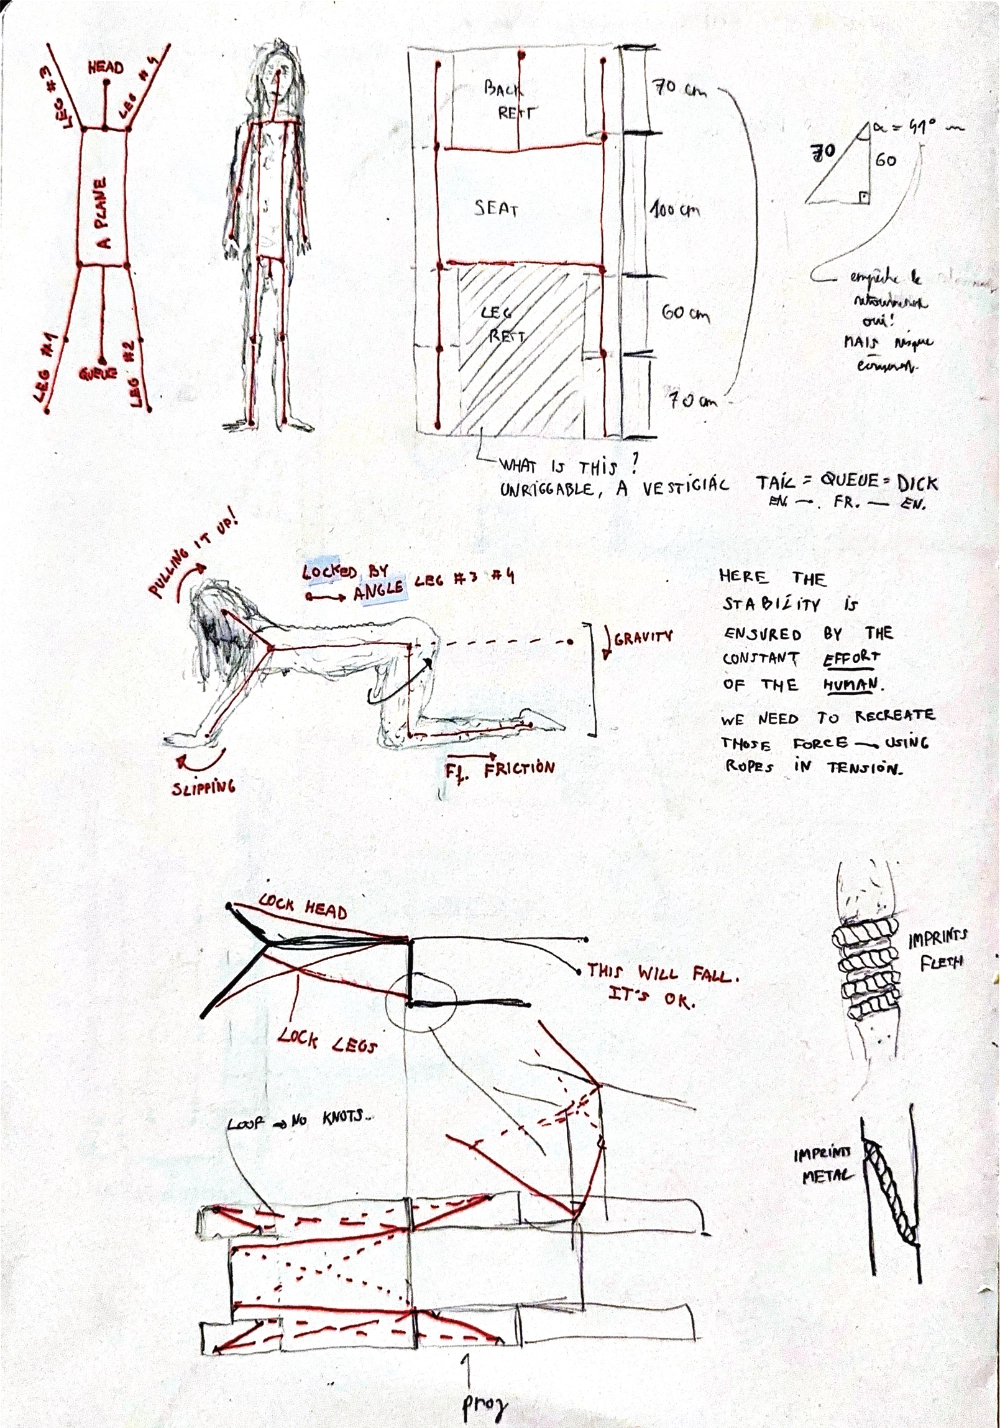 LEG #3
HEAD
LEG #4
A PLANE
LEG #1
QUEUE
LEG #2
BACK
REST
SEAT
LEG
REST
70 cm
100 cm
60 cm
70 cm
70
α = 41°
60
empêche le
retournement
oui!
MAIS risque
WHAT IS THIS?
UNRIGGABLE, A VESTIGIAL TAIL = QUEUE = DICK
EN — FR. — EN.
PULLING IT UP!
LOCKED BY
ANGLE LEG #3 #4
GRAVITY
SLIPPING
Ff. FRICTION
HERE THE
STABILITY IS
ENSURED BY THE
CONSTANT EFFORT
OF THE HUMAN.
WE NEED TO RECREATE
THOSE FORCE → USING
ROPES IN TENSION.
LOCK HEAD
THIS WILL FALL.
IT'S OK.
LOCK LEGS
IMPRINTS
FLESH
LOOP → NO KNOTS..
IMPRINTS
METAL
proj